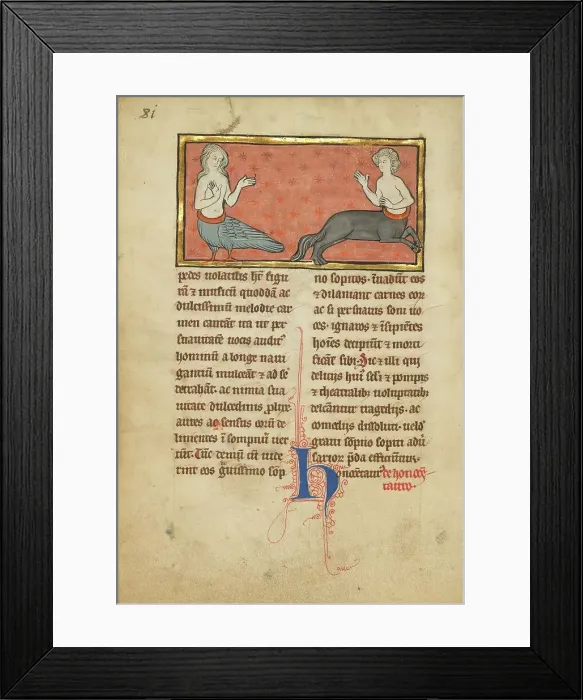 81
pedes uolatilis hr̄t figu
rā ⁊ musicū quoddā ac
dulcissimū melodie car
men cantāt ita ut per
suauitatē uocis auditꝰ
hominū a longe naui
gantiū mulceāt ⁊ ad se
detrahāt. ac nimia sua
uitate dulcedinis
aures ac sensus eorū de
linientes ī sompnū uer
tūt. Tūc demū cū uide
rint eos guissimo sōp
no sopitos. īuadūt eos
⁊ dilaniant carnes eoꝝ
ac si persuauis soni uo
ces. ignaros ⁊ īsipiētes
hoīes decipiūt ⁊ morti
ficāt sibi. Sic ⁊ illi qui
delitijs huiꝰ scl̄i ⁊ pompis
⁊ theatralibꝫ uoluptatibꝫ
delectantur tragedijs. ac
comedijs dissoluti. uelud
graui sōpno sopiti adu
sarioꝝ p̄da efficiuntur.
honocētaurꝰ de honocē
tauro.